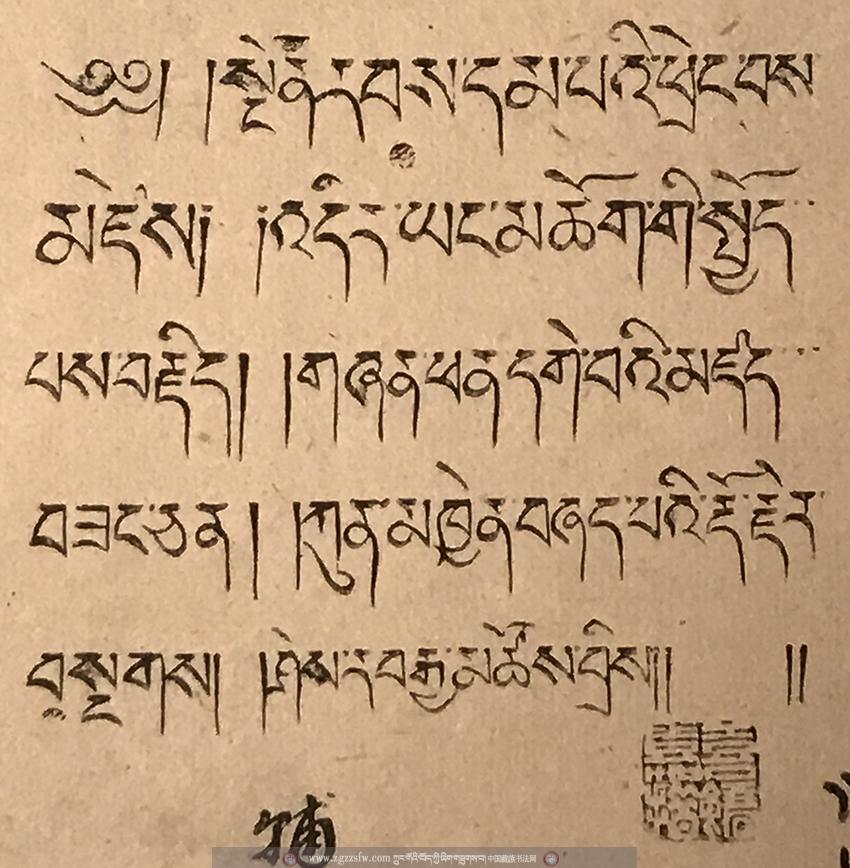 ༄༅། །སྔོན་རབས་དམ་པའི་ཕྲེང་བས
མཛེས། །འདིར་ཡང་མཆོག་གི་སྤྱོད་
པས་བརྗིད། །གཞན་ཕན་དགེ་བའི་མཛད་
བཟང་ཅན། །ཀུན་མཁྱེན་བཞད་པའི་རྡོ་རྗེར་
བསྔགས། །ཤེས་རབ་རྒྱ་མཚོས་བྲིས།། །།
www.zgzzsfw.com 中国藏族书法网